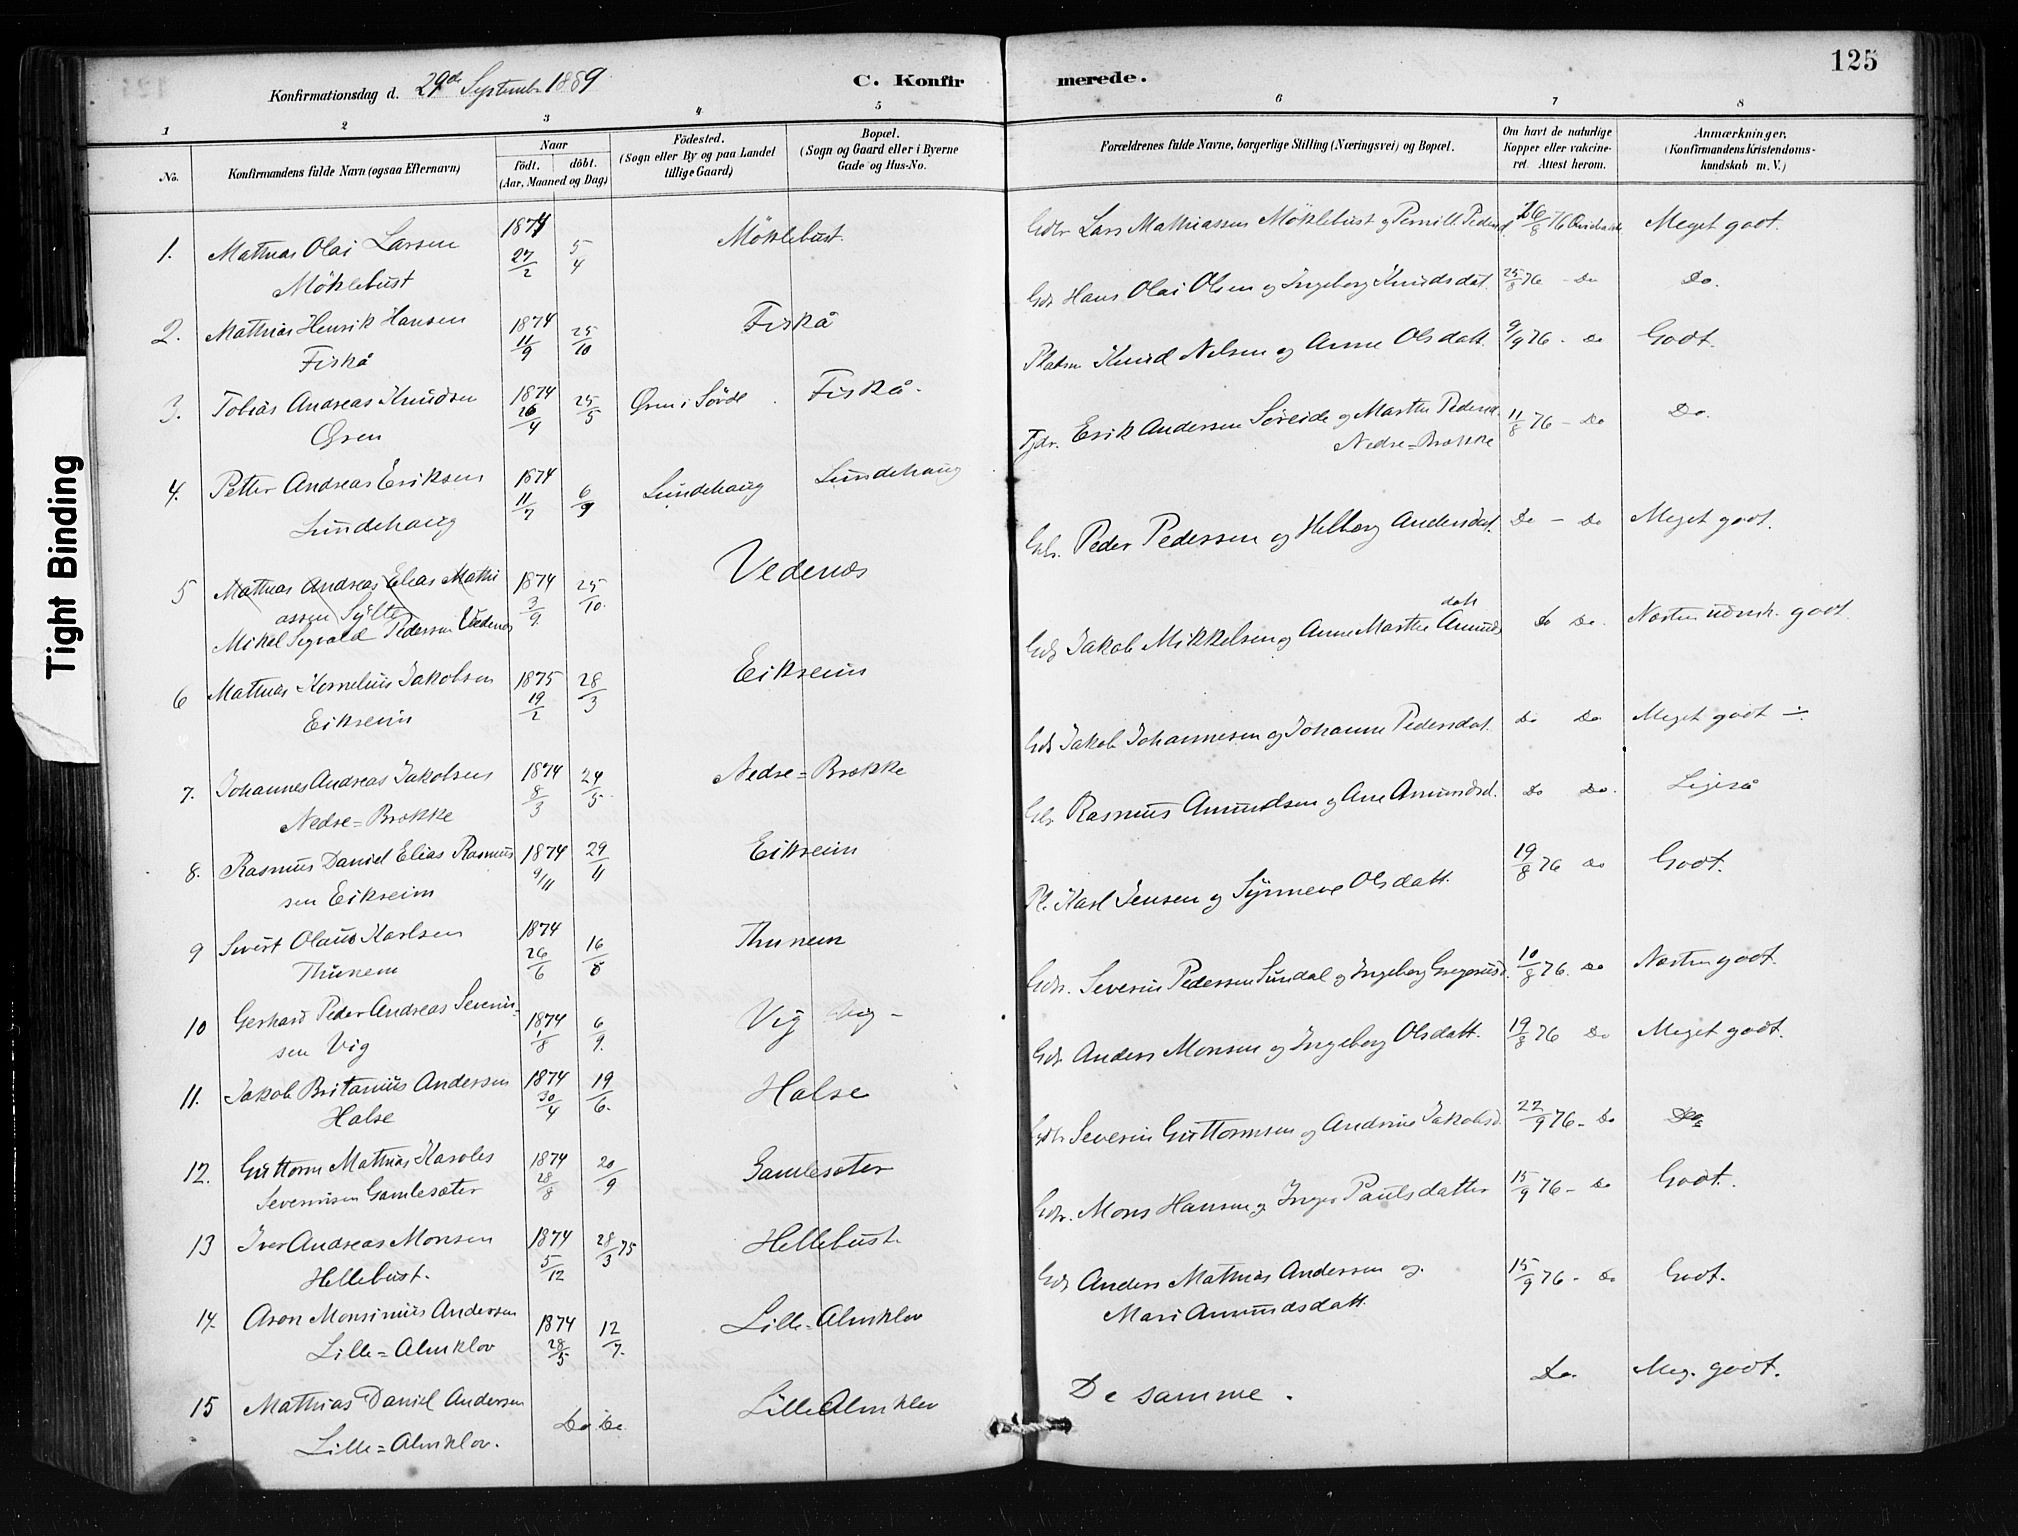 125
Konfirmationsdag d. 29de September 1889
C. Konfirmerede.
1 2 3 4 5 6 7 8
No.
Konfirmandens fulde Navn (ogsaa Efternavn)
Naar
födt. döbt.
(Aar, Maaned og Dag)
Födested.
(Sogn eller By og paa Landet
tillige Gaard)
Bopæl.
(Sogn og Gaard eller i Byerne
Gade og Hus-No.
Forældrenes fulde Navne, borgerlige Stilling (Næringsvei) og Bopæl.
Om havt de naturlige
Kopper eller vakcine-
ret. Attest herom.
Anmærkninger.
(Konfirmandens Kristendoms-
kundskab m. V.)
1. Mathias Olai Larsen 1874 27/2 5/4 Möklebust. Gdbr Lars Mathiassen Möklebust og Pernill Pedersd. 26/8 76 Meget godt.
Möklebust
2. Mathias Henrik Hansen 1874 11/9 25/10 Fiskå Gdr Hans Olai Olsen og Ingeborg Knudsdat. 25/8 76 - Do Do.
Fiskå
3. Tobias Andreas Knudsen 1874 26/4 25/5 Øren i Sövde Fiskå. Pladsm Knud Nelsen og Anne Olsdatt. 9/9 76. Do Godt.
Øren
4. Petter Andreas Eriksen 1874 11/7 6/9 Lundehaug Lundehaug Tjdr. Erik Andersen Søreide og Marthe Pedersd. 11/8 76 - Do Do.
Lundehaug Nedre=Brække
5 Mathias Andreas Elias Mathi 1874 3/9 25/10. Vedenæs Gbr. Peder Pedersen og Helberg Andersdat. Do - Do Meget godt.
assen Sylte
Mikal Sigvald Pedersen Vedenæs
6 Mathias Kornelius Jakobsen 1875 19/2 28/3 Eikreim Gdr Jakob Mikkelsen og Anne Marthe Amunds datt Do Do. Næsten udmk. godt
Eikreim
7. Johannes Andreas Jakobsen 1874 8/3 24/5. Nedre=Brække Gdr Jakob Johannesen og Johanne Pedersdat. Do Do Meget godt ÷
Nedre=Brække
8. Rasmus Daniel Elias Rasmus 1874 9/11 29/11 Eikreim Gbr Rasmus Amundsen og Ane Amundsd. Do Do. Ligeså
sen Eikreim
9 Sivert Olaus Karlsen 1874 26/6 16/8 Thunem Pl. Karl Jensen og Synneve Olsdatt. 19/8 76 Do Godt.
Thunem
10 Gerhard Peder Andreas Severin= 1874 1/8 6/9. Vig Vig - Gdr. Severin Pedersen Sundal og Ingeborg Gregoriusd. 10/8 76. Do Næsten godt.
sen Vig
11. Jakob Britanius Andersen 1874 30/4 19/6. Halse Gdr Anders Monsen og Ingeborg Olsdatt. 19/8 76 Do Meget godt.
Halse
12. Guttorm Mathias Karoles 1874 28/8 20/9 Gamlesæter Gdbr Severin Guttormsen og Andrine Jakobsd. 22/9 76- Do Do
Severinsen Gamlesæter
13 Iver Andreas Monsen 1874 5/12 28/3 75 Hellebust. Gdbr. Mons Hansen og Inger Paulsdatter 15/9 76- Do Godt.
Hellebust.
14. Aron Monsinius Andersen 1874 28/5 12/7. Lille-Almklov Gdr Anders Mathias Andersen og 15/9 76- Do Godt.
Lille=Almklov Mari Amundsdatt.
15 Mathias Daniel Andersen Do Do Lille Almklov De samme. Do. Meg. godt.
Lille=Almklov.
Tight Binding